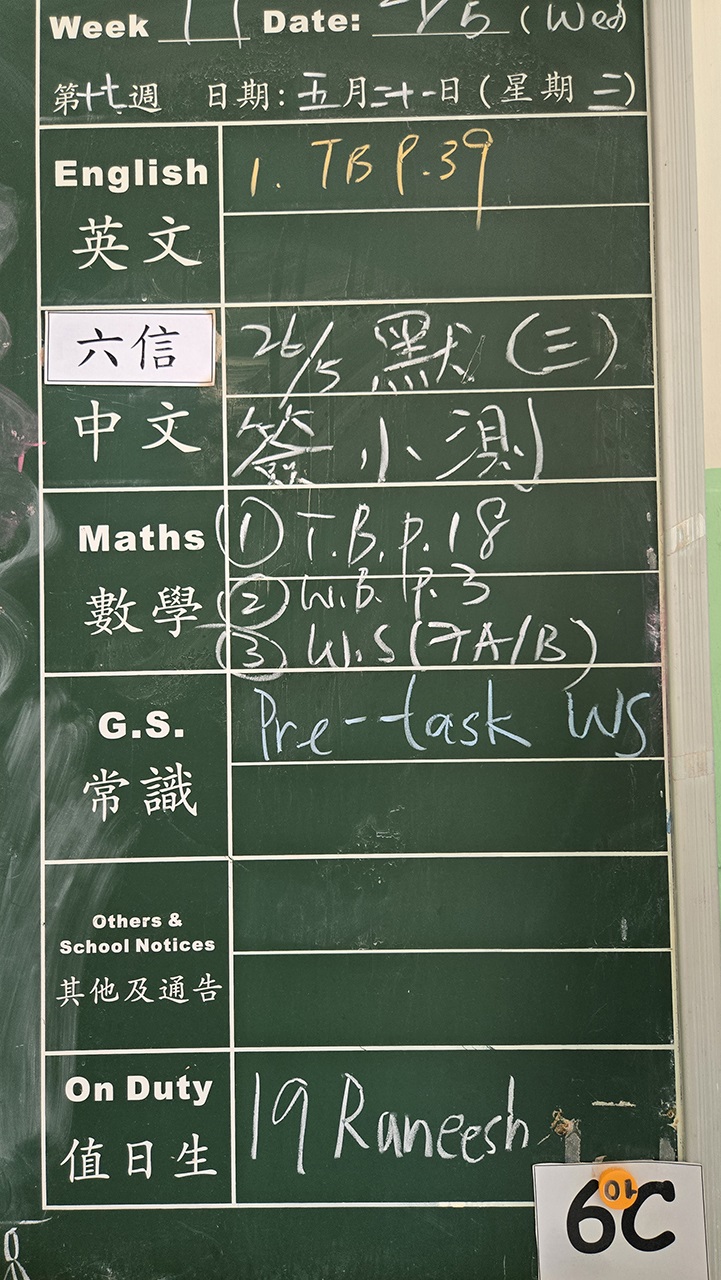 Week 17 Date: 21/5 (Wed)
第十七週 日期: 五月二十一日 (星期三)
English 1. TB P.39
英文
六信 26/5 默 (三)
中文 簽小測
Maths ① T.B. P. 18
數學 ② W.B. P. 3
③ W.S (7A/B)
G.S. Pre-task WS
常識
Others &
School Notices
其他及通告
On Duty 19 Raneesh
值日生
6C